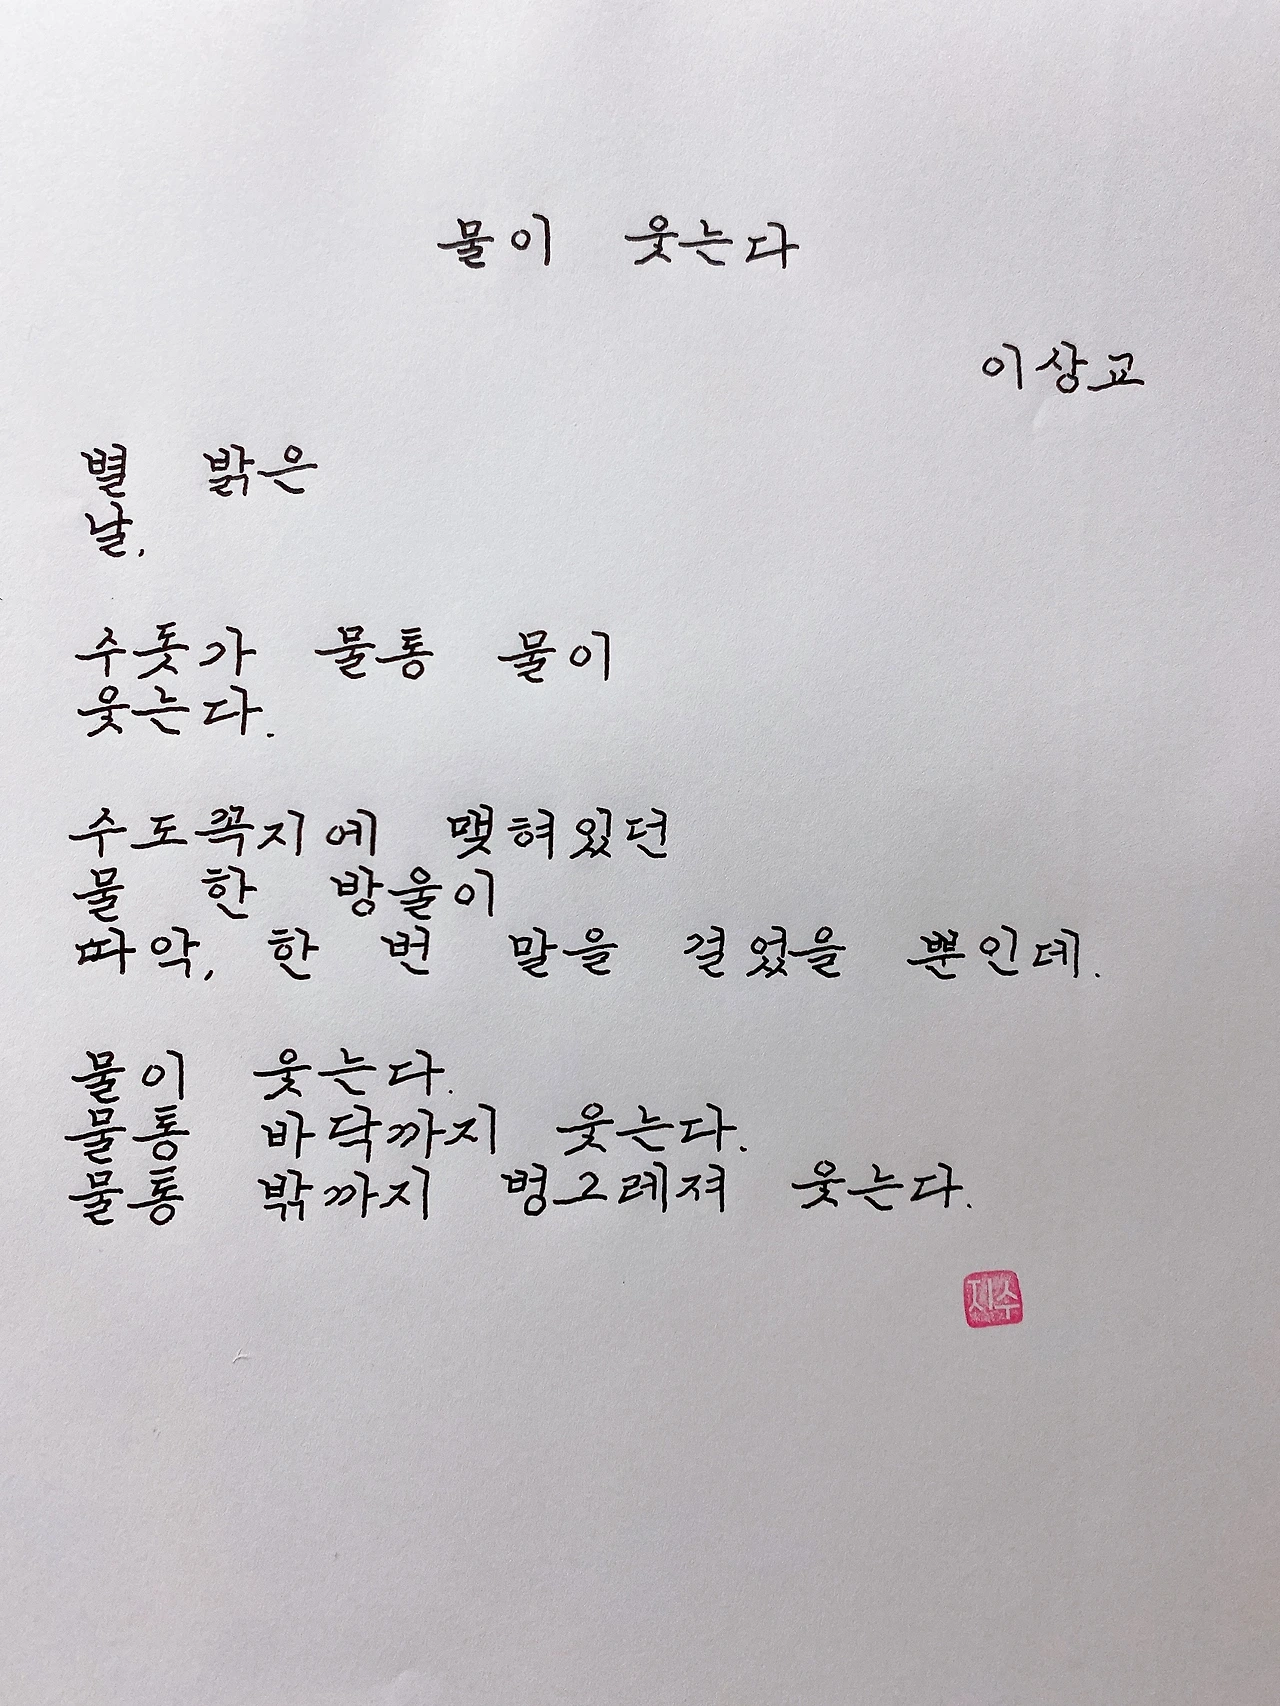 물이 웃는다
이상교
별 밝은
날,
수돗가 물통 물이
웃는다.
수도꼭지에 맺혀있던
물 한 방울이
따악, 한 번 말을 걸었을 뿐인데.
물이 웃는다.
물통 바닥까지 웃는다.
물통 밖까지 벙그레져 웃는다.
지수